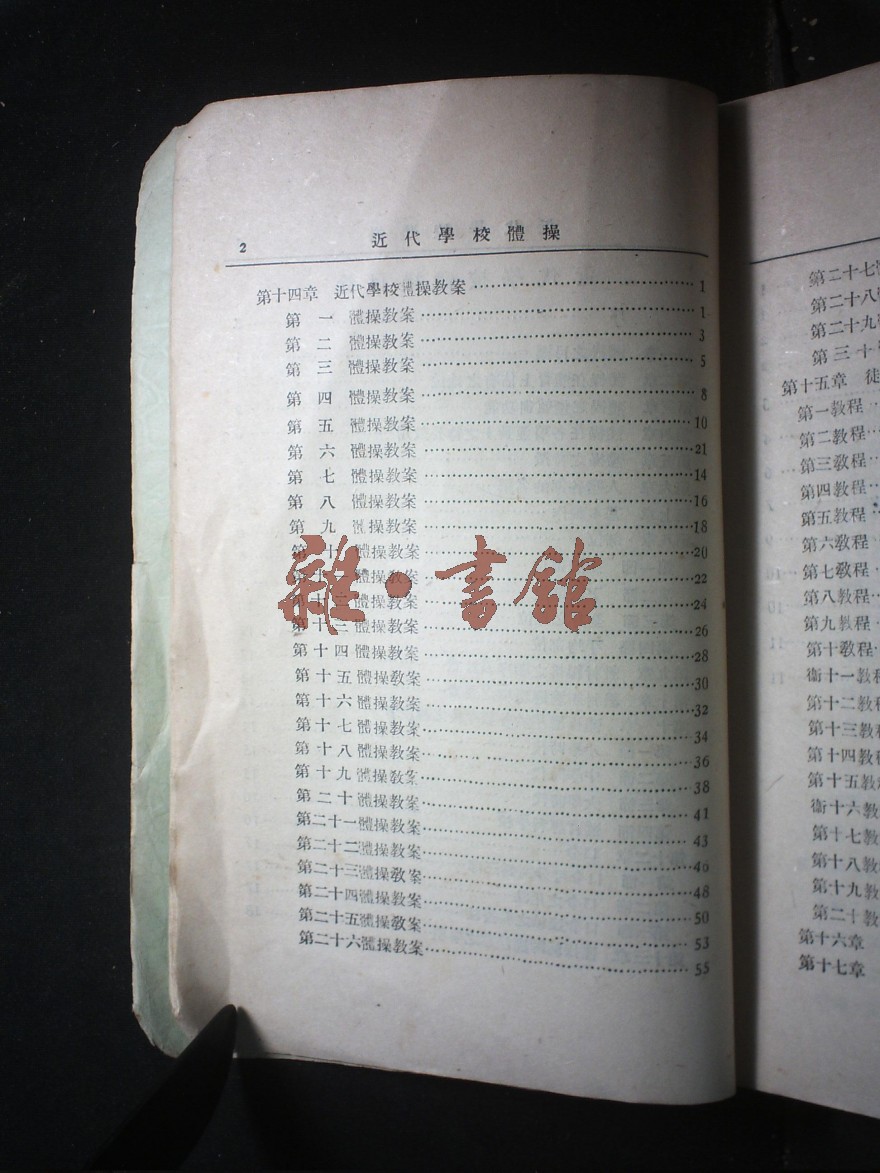 2 近代學校體操
第十四章 近代學校體操教案 1
第一體操教案 1
第二體操教案 3
第三體操教案 5
第四體操教案 8
第五體操教案 10
第六體操教案 21
第七體操教案 14
第八體操教案 16
第九體操教案 18
第十體操教案 20
第十一體操教案 22
第十二體操教案 24
第十三體操教案 26
第十四體操教案 28
第十五體操教案 30
第十六體操教案 32
第十七體操教案 34
第十八體操教案 36
第十九體操教案 38
第二十體操教案 41
第二十一體操教案 43
第二十二體操教案 46
第二十三體操敎案 48
第二十四體操教案 50
第二十五體操敎案 53
第二十六體操教案 55
雜·書館
第二十七體
第二十八
第二十九
第三十
第十五章 徒
第一教程
第二教程
第三教程
第四教程
第五教程
第六教程
第七敎程
第八教程
第九教程
第十敎程
衛十一教程
第十二教程
第十三教程
第十四教
第十五教
衛十六教
第十七教
第十八教
第十九教
第二十教
第十六章
第十七章